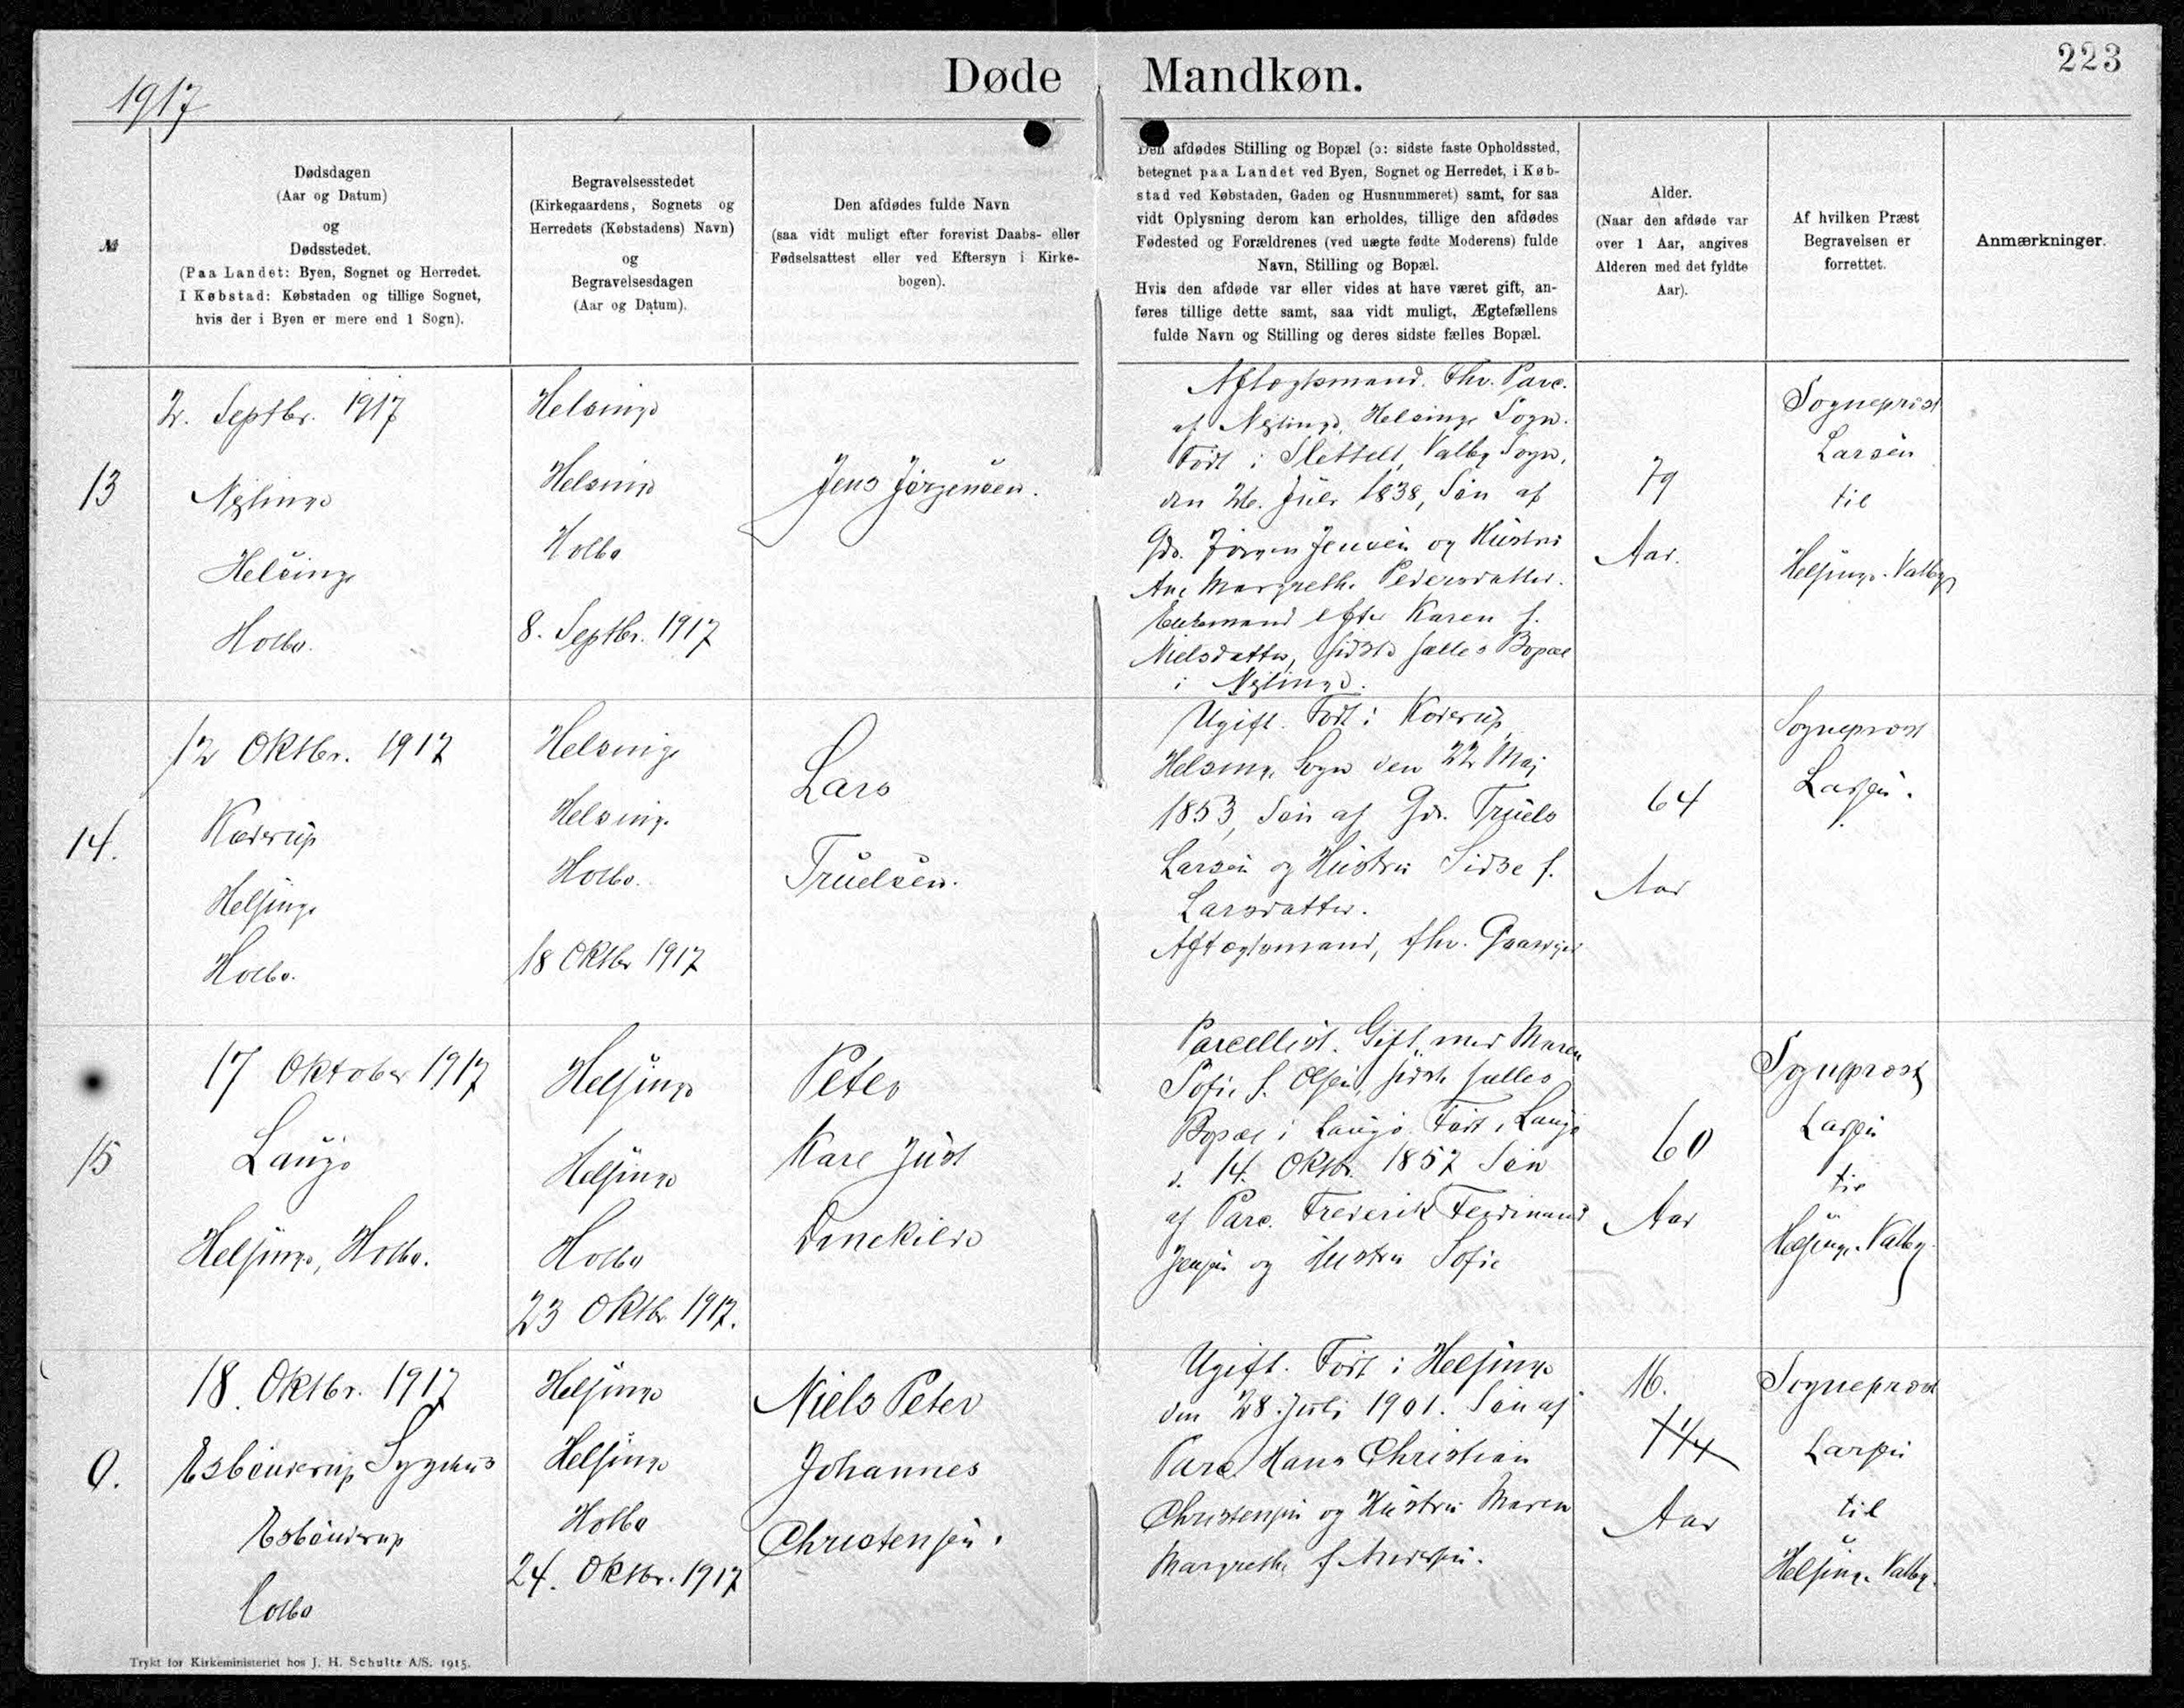 223
1917
Døde Mandkøn.
№
Dødsdagen
(Aar og Datum)
og
Dødsstedet.
(Paa Landet: Byen, Sognet og Herredet.
I Købstad: Købstaden og tillige Sognet,
hvis der i Byen er mere end 1 Sogn).
Begravelsesstedet
(Kirkegaardens, Sognets og
Herredets (Købstadens) Navn)
og
Begravelsesdagen
(Aar og Datum).
Den afdødes fulde Navn
(saa vidt muligt efter forevist Daabs- eller
Fødselsattest eller ved Eftersyn i Kirke-
bogen).
Den afdødes Stilling og Bopæl (ɔ: sidste faste Opholdssted,
betegnet paa Landet ved Byen, Sognet og Herredet, i Køb-
stad ved Købstaden, Gaden og Husnummeret) samt, for saa
vidt Oplysning derom kan erholdes, tillige den afdødes
Fødested og Forældrenes (ved uægte fødte Moderens) fulde
Navn, Stilling og Bopæl.
Hvis den afdøde var eller vides at have været gift, an-
føres tillige dette samt, saa vidt muligt, Ægtefællens
fulde Navn og Stilling og deres sidste fælles Bopæl.
Alder.
(Naar den afdøde var
over 1 Aar, angives
Alderen med det fyldte
Aar).
Af hvilken Præst
Begravelsen er
forrettet.
Anmærkninger.
13
2. Septbr. 1917
Nejlinge
Helsinge
Holbo.
Helsinge
Helsinge
Holbo
8. Septbr. 1917
Jens Jørgensen.
Aftægtsmand. Fhv. Parc.
af Nejlinge, Helsinge Sogn.
Født i Slettelt, Valby Sogn,
den 26. Juli 1838, Søn af
Gdr. Jørgen Jensen og Hustru
Ane Margrethe Pedersdatter.
Enkemand efter Karen f.
Nielsdatter, sidste fælles Bopæl
i Nejlinge.
79
Aar.
Sognepræst
Larsen
til
Helsinge-Valby
14.
12 Oktbr. 1917
Kaderup
Helsinge
Holbo.
Helsinge
Helsinge
Holbo.
18 Oktbr 1917
Lars
Truelsen.
Ugift. Født i Kaderup,
Helsinge Sogn den 22 Maj
1853, Søn af Gdr. Truels
Larsen og Hustru Sidse f.
Larsdatter.
Aftægtsmand, fhv. Gaardejer
64
Aar
Sognepræst
Larsen.
15
17 Oktober 1917
Laugø
Helsinge, Holbo.
Helsinge
Helsinge
Holbo
23 Oktbr 1917.
Peter
Karl Just
Danekilde
Parcellist. Gift med Maren
Sofie f. Olsen, sidste fælles
Bopæl i Laugø. Født i Laugø
d. 14. Oktbr. 1857 Søn
af Parc. Frederik Ferdinand
Jensen og Hustru Sofie
60
Aar
Sognepræst
Larsen
til
Helsinge-Valby.
0.
18. Oktbr. 1917
Esbønderup Sygehus
Esbønderup
Holbo
Helsinge
Helsinge
Holbo
24. Oktbr. 1917
Niels Peter
Johannes
Christensen.
Ugift. Født i Helsinge
den 28. Juli 1901. Søn af
Parc. Hans Christian
Christensen og Hustru Maren
Margrethe f. Andersen.
16.
Aar
Sognepræst
Larsen
til
Helsinge-Valby.
Trykt for Kirkeministeriet hos J. H. Schultz A/S. 1915.